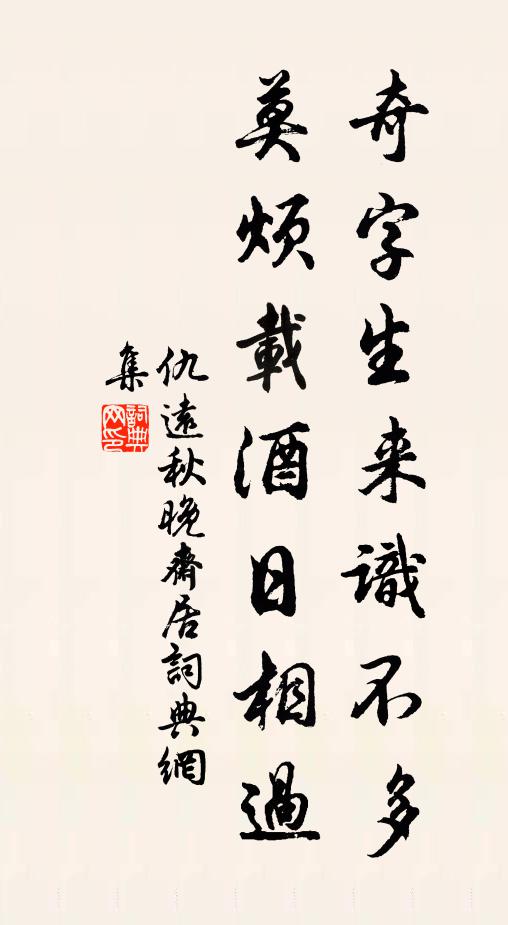 奇字生来識不多
莫煩載酒日相過
仇遠秋晚齋居詞典網
集
詞典網印